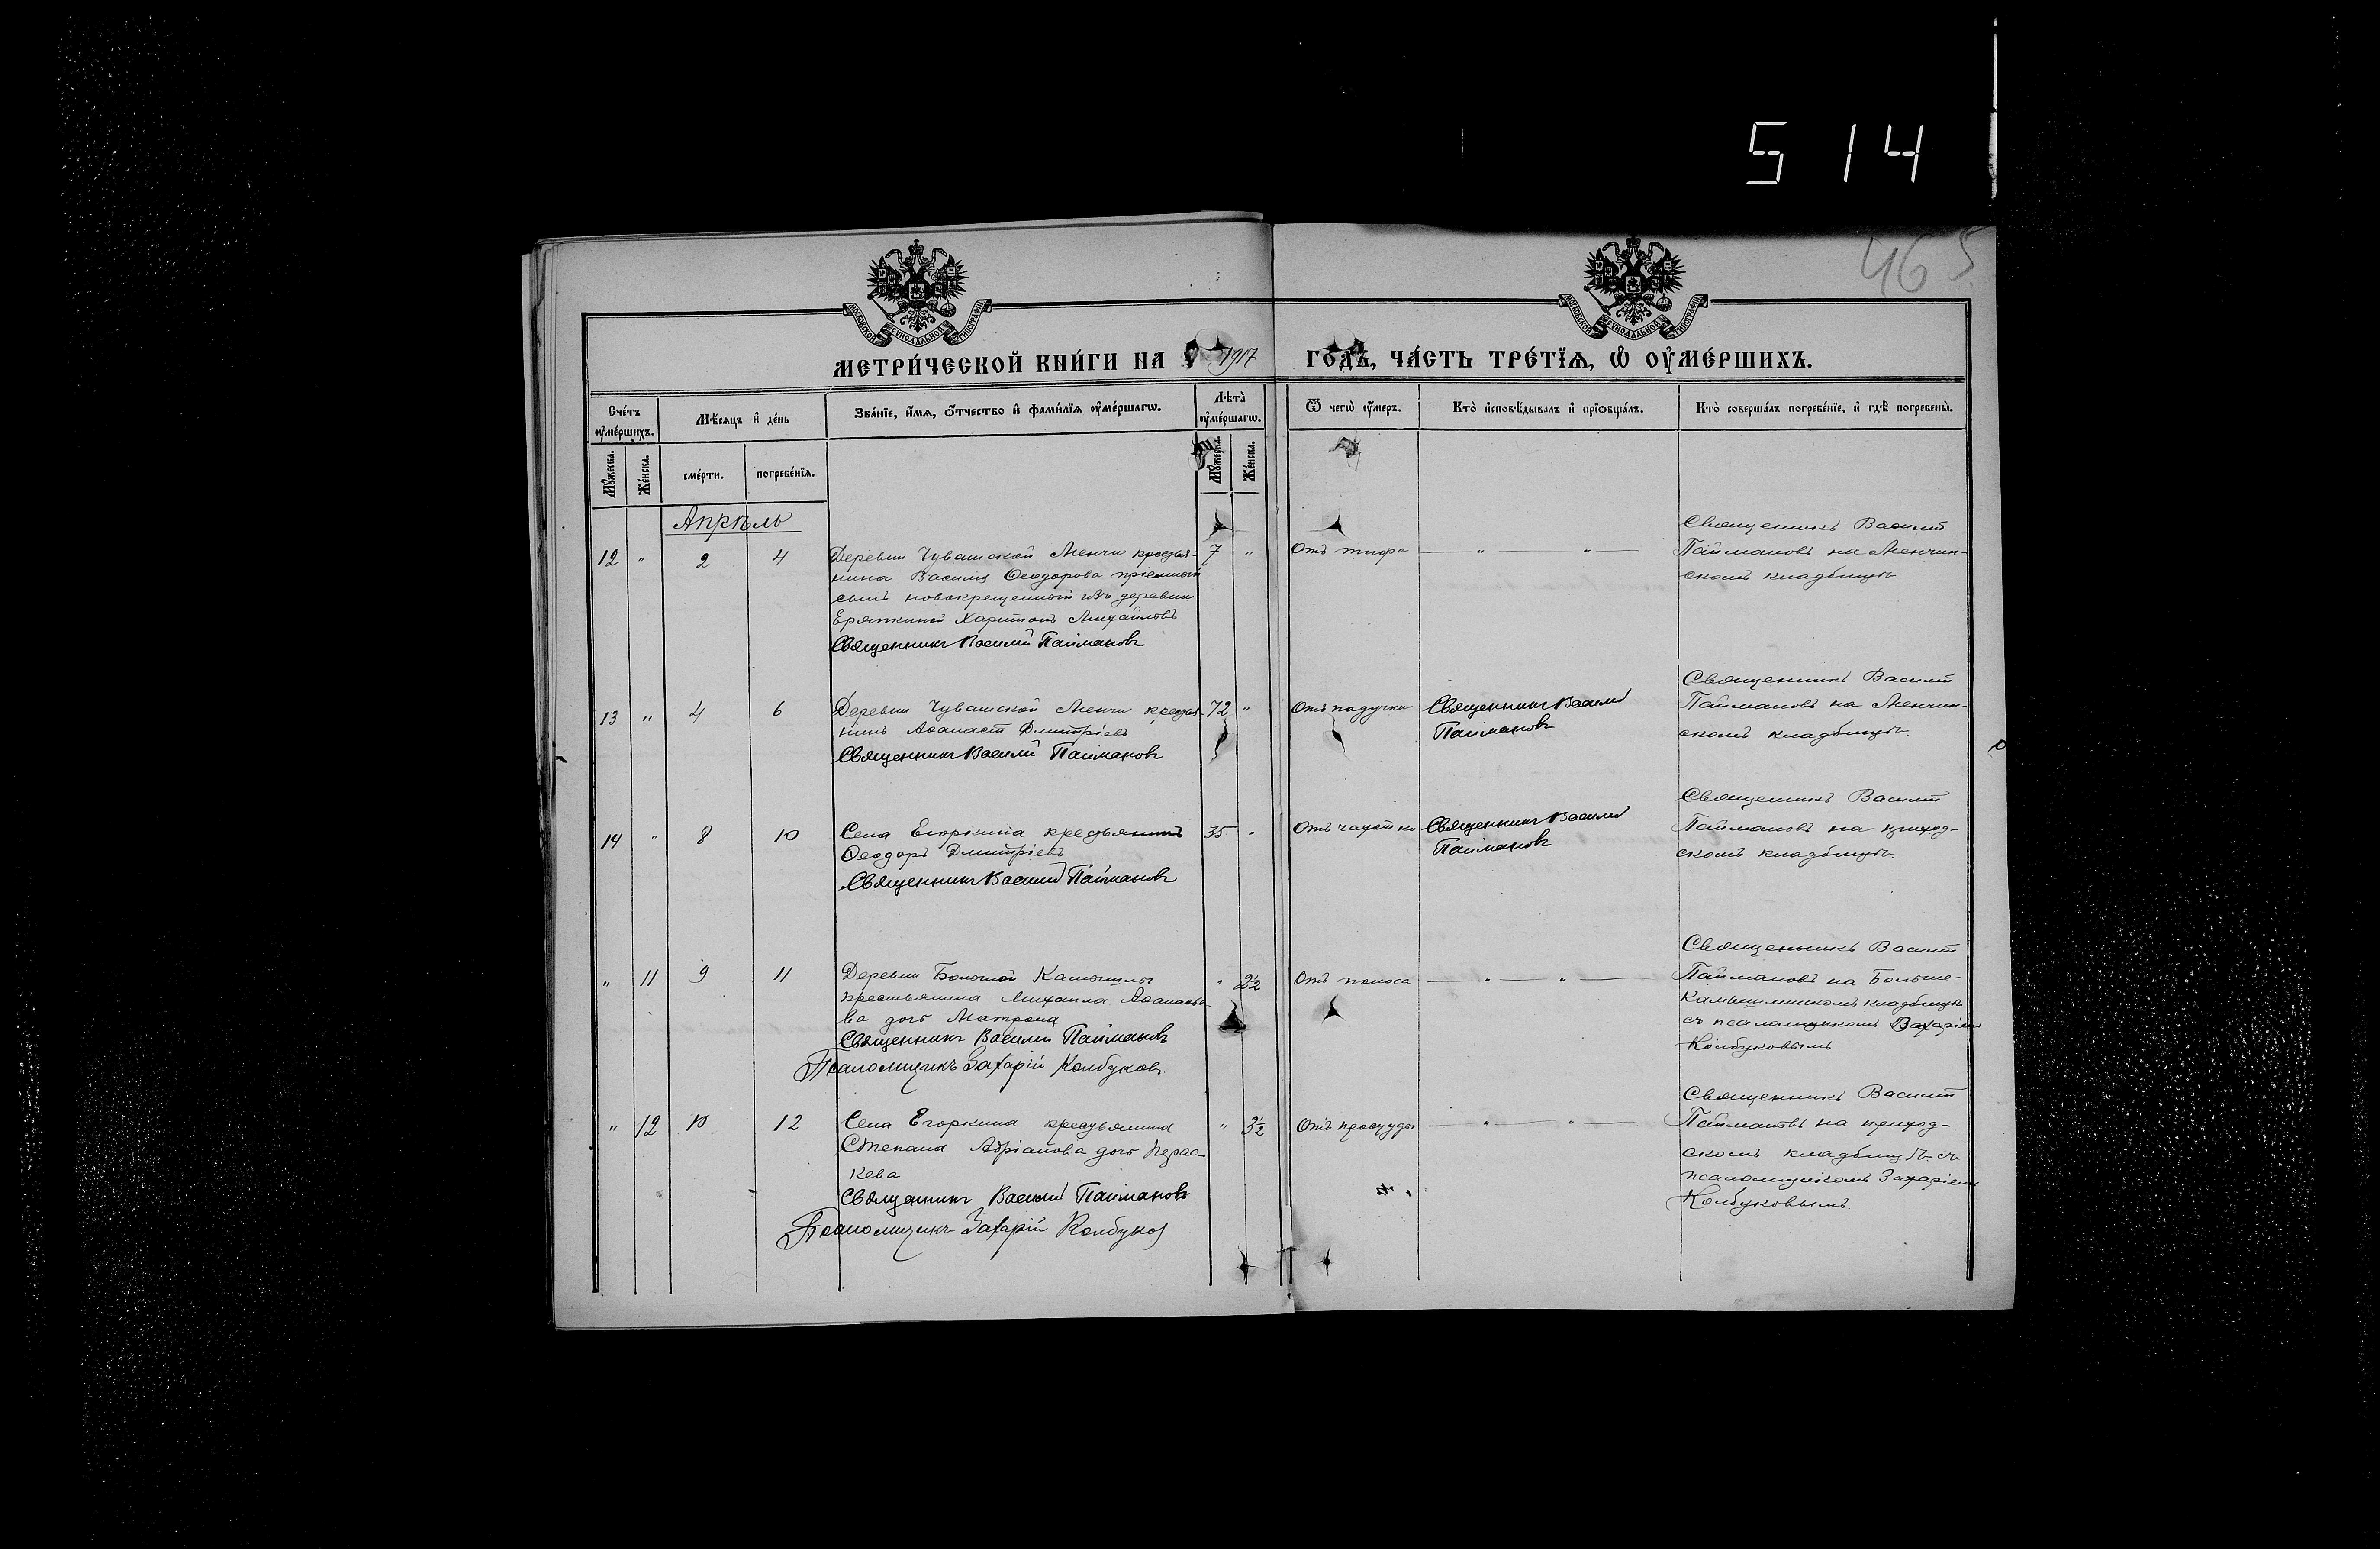 514
465
МОСКОВСКОЙ СѴНОДАЛЬНОЙ ТИПОГРАФІИ
МОСКОВСКОЙ СѴНОДАЛЬНОЙ ТИПОГРАФІИ
МЕТРИ́ЧЕСКОЙ КНИ́ГИ НА 1917 ГО́ДЪ, ЧА́СТЬ ТРЕ́ТЇѦ, Ѡ҆ ОУ҆МЕ́РШИХЪ.
Сче́тъ оу҆ме́ршихъ.
Мѣ́сяцъ и҆ де́нь
Зва́нїе, и҆́мѧ, ѻ҆́тчество и҆ фами́лїѧ оу҆ме́ршагѡ.
Лѣ́та оу҆ме́ршагѡ.
Ѿ чегѡ̀ оу҆́меръ.
Кто̀ и҆сповѣ́дывалъ и҆ прїѡбща́лъ.
Кто̀ соверша́лъ погребе́нїе, и҆ гдѣ̀ погребены̀.
Мꙋ́жеска.
Же́нска.
сме́рти.
погребе́нїѧ.
Мꙋ́жеска.
Же́нска.
Апрѣль
12 " 2 4
Деревни Чувашской Менчи крестья-
нина Василия Ѳеодорова пріемный
сынъ новокрещенный изъ деревни
Харитонъ Михайловъ
Священникъ Василій Паймановъ
7 "
Отъ тифа
" "
Священникъ Василій
Паймановъ на Менчин-
скомъ кладбищѣ.
13 " 4 6
Деревни Чувашской Менчи крестья-
нинъ Аѳанасій Дмитріевъ
Священникъ Василій Паймановъ
72 "
Отъ падучки
Священникъ Василій
Паймановъ
Священникъ Василій
Паймановъ на Менчин-
скомъ кладбищѣ.
14 " 8 10
Села Егоркина крестьянинъ
Ѳеодоръ Дмитріевъ
Священникъ Василій Паймановъ
35 "
Отъ чахотки
Священникъ Василій
Паймановъ
Священникъ Василій
Паймановъ на приход-
скомъ кладбищѣ.
" 11 9 11
Деревни Большой Камышлы
крестьянина Михаила Аѳанасье-
ва дочь Матрона
Священникъ Василій Паймановъ
Псаломщикъ Захарій Колбуковъ.
" 2½
Отъ поноса
" "
Священникъ Василій
Паймановъ на Больше-
Камышлинскомъ кладбищѣ
съ псаломщикомъ Захаріемъ
Колбуковымъ
" 12 10 12
Села Егоркина крестьянина
Степана Адріанова дочь Парас-
кева
Священникъ Василій Паймановъ
Псаломщикъ Захарій Колбуковъ
" 3½
Отъ простуды
" "
Священникъ Василій
Паймановъ на приход-
скомъ кладбищѣ съ
псаломщикомъ Захаріемъ
Колбуковымъ.